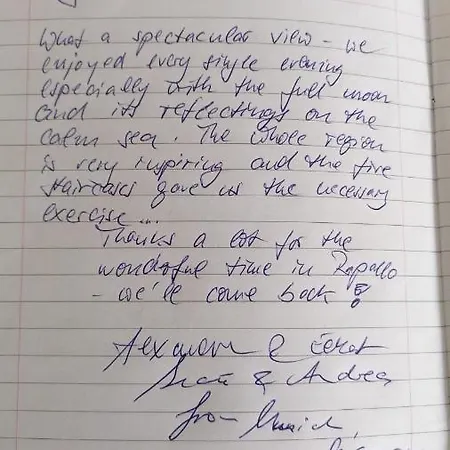 What a spectacular view - we
enjoyed every single evening
especially with the full moon
and its reflectings on the
calm sea. The whole region
is very inspiring and the five
staircases gave us the necessary
exercise...
Thanks a lot for the
wonderful time in Rapallo
- we'll come back!
& 
& Andrea
from Munich,